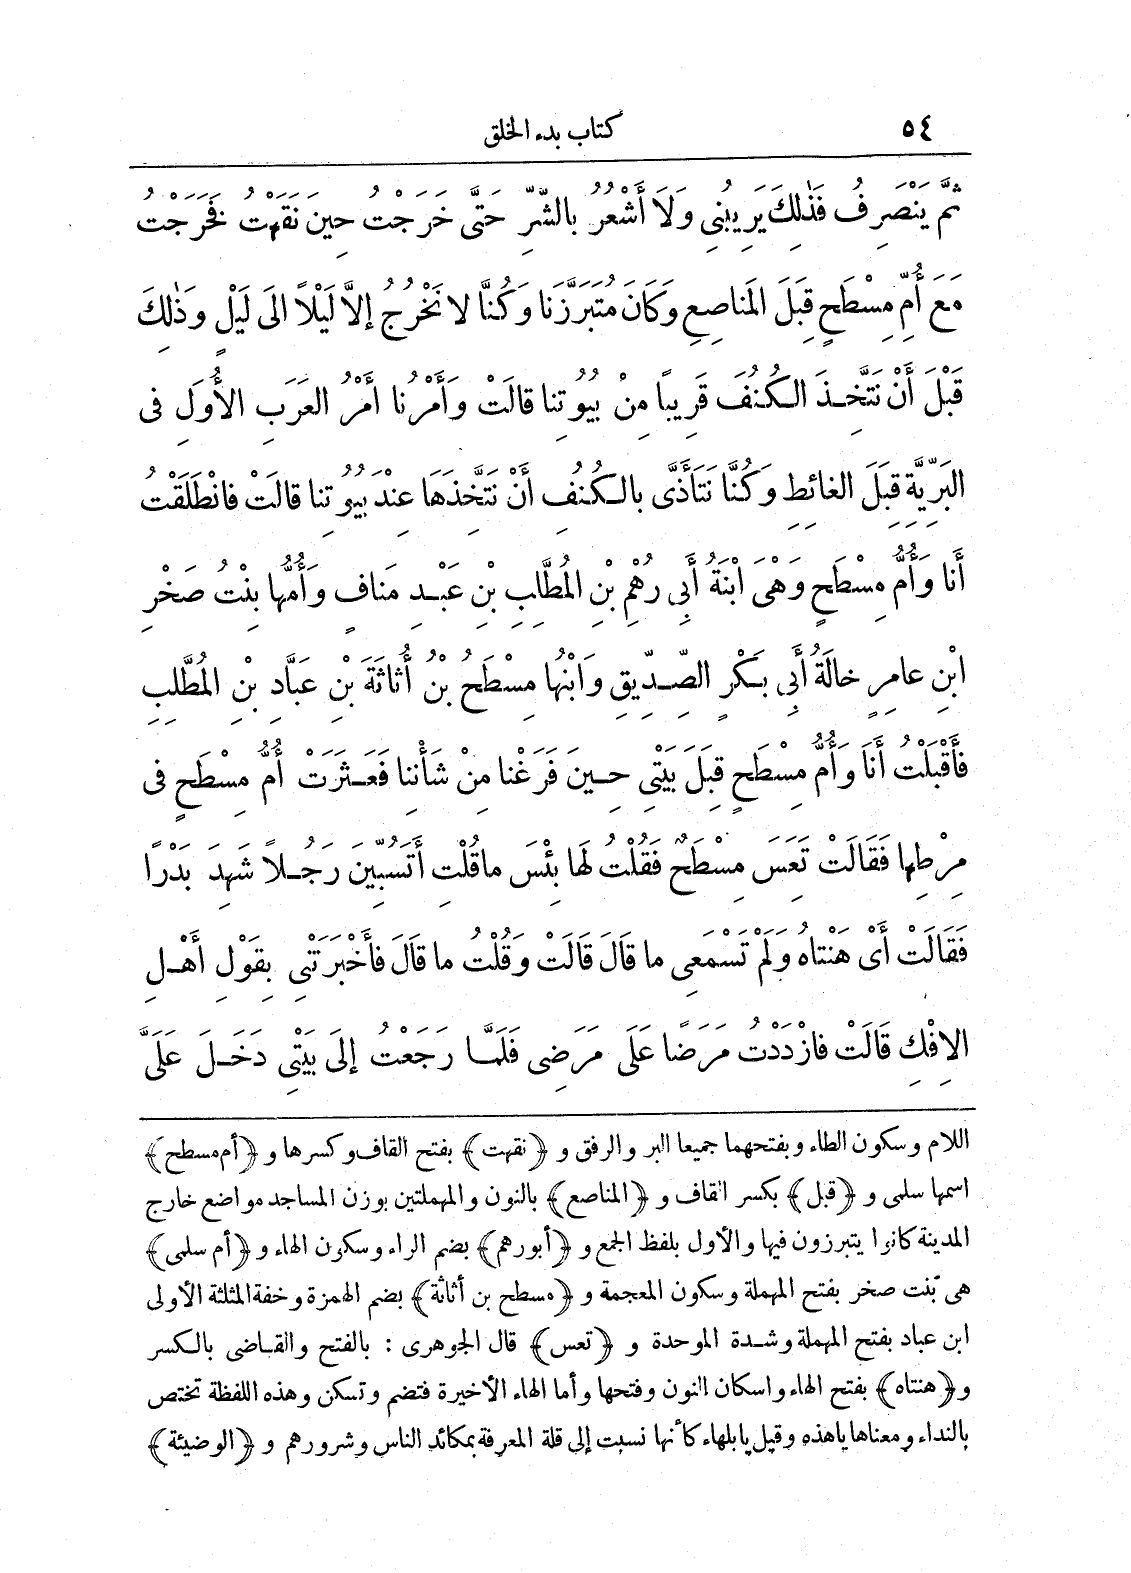 ٥٤ كتاب بدء الخلق
ثُمَّ يَنْصَرِفُ فَذٰلِكَ يَرِيبُنِى وَلَا أَشْعُرُ بِالشَّرِّ حَتَّى خَرَجْتُ حِينَ نَقَهْتُ فَخَرَجْتُ
مَعَ أُمِّ مِسْطَحٍ قِبَلَ المَناصِعِ وَكَانَ مُتَبَرَّزَنَا وَكُنَّا لا نَخْرُجُ إلاَّ لَيْلاً الَى لَيْلٍ وَذٰلِكَ
قَبْلَ أَنْ نَتَّخِـذَ الـكُنُفَ قَرِيباً مِنْ بُيُوتِنا قالَتْ وَأَمْرُنا أَمْرُ العَرَبِ الأُوَلِ فى
البَرِّيَّةِ قِبَلَ الغائِطِ وَكُنَّا نَتَأَذَّى بالـكُنُفِ أَنْ نَتَّخِذَهَا عِنْدَ بُيُوتِنا قالَتْ فانْطَلَقْتُ
أَنا وَأُمُّ مِسْطَحٍ وَهْىَ ابْنَةُ أَبِى رُهْمِ بْنِ المُطَّلِبِ بْنِ عَبْـدِ مَنافٍ وَأُمُّها بِنْتُ صَخْرِ
ابْنِ عامِرٍ خالَةُ أَبِى بَـكْرٍ الصِّـدِّيقِ وَابْنُها مِسْطَحُ بْنُ أُثاثَةَ بْنِ عَبَّادِ بْنِ المُطَّلِبِ
فأَقْبَلْتُ أَنَا وَأُمُّ مِسْطَحٍ قِبَلَ بَيْتِى حِـينَ فَرَغْنا مِنْ شَأْنِنا فَعَـثَرَتْ أُمُّ مِسْطَحٍ فى
مِرْطِها فَقَالَتْ تَعَسَ مِسْطَحٌ فَقُلْتُ لَها بِئْسَ ماقُلْتِ أَتَسُبِّينَ رَجُـلاً شَهِدَ بَدْرًا
فَقَالَتْ أَىْ هَنْتاهُ وَلَمْ تَسْمَعِى ما قَالَ قَالَتْ وَقُلْتُ ما قَالَ فأَخْبَرَتْنِى بِقَوْلِ أَهْـلِ
الاِفْكِ قَالَتْ فازْدَدْتُ مَرَضًا عَلَى مَرَضِى فَلَمَّـا رَجَعْتُ إلَى بَيْتِى دَخَـلَ عَلَىَّ
اللام وسكون الطاء وبفتحهما جميعا البر والرفق و ﴿نقهت﴾ بفتح القاف وكسرها و ﴿أم مسطح﴾
اسمها سلمى و ﴿قبل﴾ بكسر القاف و ﴿المناصع﴾ بالنون والمهملتين بوزن المساجد مواضع خارج
المدينة كانوا يتبرزون فيها والأول بلفظ الجمع و ﴿أبورهم﴾ بضم الراء وسكون الهاء و ﴿أم سلمى﴾
هى بنت صخر بفتح المهملة وسكون المعجمة و ﴿مسطح بن أثاثة﴾ بضم الهمزة وخفة المثلثة الأولى
ابن عباد بفتح المهملة وشدة الموحدة و ﴿تعس﴾ قال الجوهرى : بالفتح والقـاضى بالـكسر
و﴿هنتاه﴾ بفتح الهاء واسكان النون وفتحها وأما الهاء الأخيرة فتضم وتسكن وهذه اللفظة تختص
بالنداء ومعناها ياهذه وقيل يابلهاء كأنها نسبت إلى قلة المعرفة بمكائد الناس وشرورهم و ﴿الوضيئة﴾